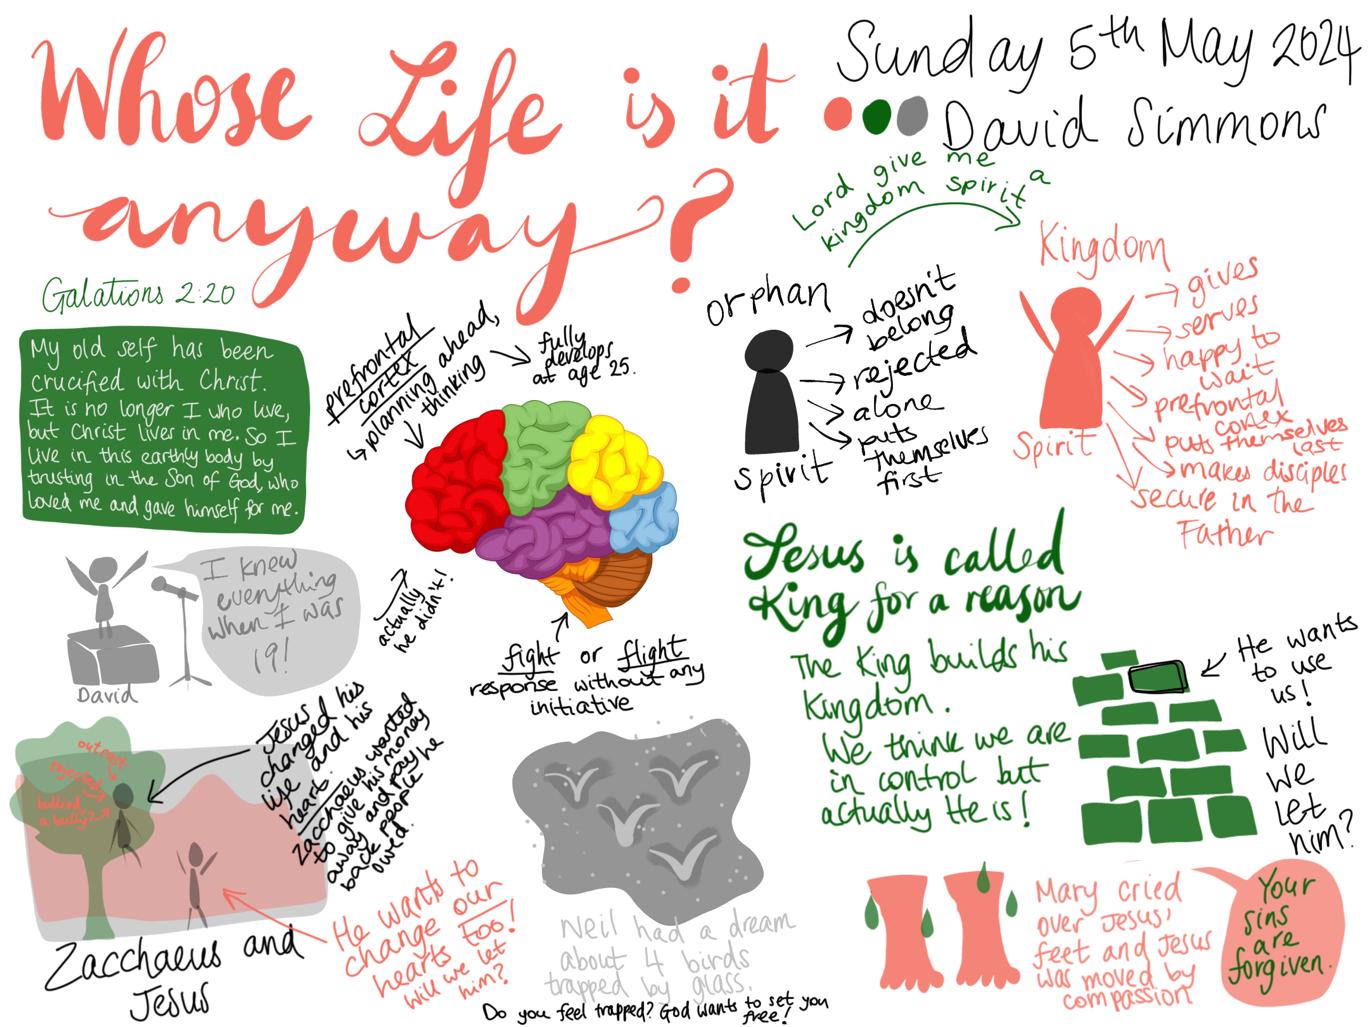 Whose Life is it
anyway?
Sunday 5th May 2024
David Simmons
Galations 2:20
My old self has been
crucified with Christ.
It is no longer I who live,
but Christ lives in me. So I
live in this earthly body by
trusting in the Son of God, who
loved me and gave himself for me.
prefrontal
cortex
↳ planning ahead,
thinking
fully
develops
at age 25.
Lord give me a
kingdom spirit
orphan
spirit
doesn't
belong
rejected
alone
puts
themselves
first
Kingdom
Spirit
gives
serves
happy to
wait
prefrontal
cortex
puts themselves
last
makes disciples
secure in the
Father
I knew
everything
when I was
19!
David
actually
he didn't!
fight or flight
response without any
initiative
Jesus is called
King for a reason
The King builds his
Kingdom.
We think we are
in control but
actually He is!
He wants
to use
us!
Will
we
let
him?
outcast
rejected
bullied
a bully?
Jesus
changed his
life and his
heart.
Zacchaeus wanted
to give his money
away and pay
back people he
owed.
Zacchaeus and
Jesus
He wants to
change our
hearts too!
Will we let
him?
Neil had a dream
about 4 birds
trapped by glass.
Do you feel trapped? God wants to set you
free!
Mary cried
over Jesus'
feet and Jesus
was moved by
compassion
Your
sins
are
forgiven.